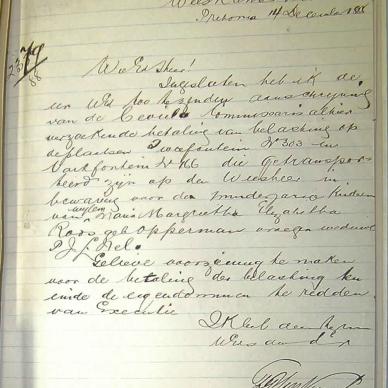 Pretoria 14 December 188
79
88
WelEd Heer!
Ingesloten heb ik de
eer UEd toe te zenden aanschrijving
van de Civiele Commissaris alhier
verzoekende betaling van belasting op
de plaatsen Tweefontein No 303 en
Varkfontein No 116 die getranspor
teerd zijn op den Weesheer in
bewaring voor den minderjarige kinderen
van wijlen Maria Margrietha Elizabetha
Roos geb Opperman vroeger weduwe
P. J. J. Nel.
Gelieve voorziening te maken
voor de betaling der belasting ten
einde de eigendommen te redden
van Executie
Ik heb de